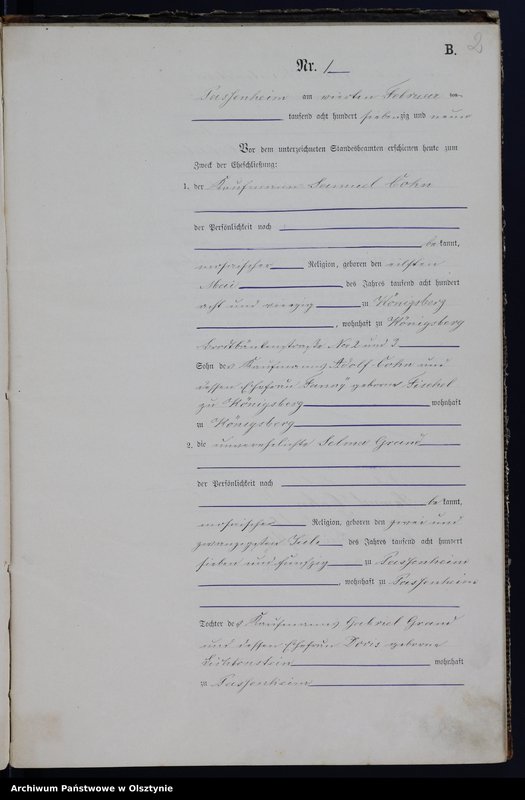 B.
2
Nr. 1
Passenheim am vierten Februar ein-
tausend acht hundert siebenzig und neun
Vor dem unterzeichneten Standesbeamten erschienen heute zum
Zweck der Eheschließung:
1. der Kaufmann Samuel Cohn
der Persönlichkeit nach
be kannt,
mosaischer Religion, geboren den elften
Mai des Jahres tausend acht hundert
acht und vierzig zu Königsberg
, wohnhaft zu Königsberg
No 2 und 3
Sohn des Kaufmanns Adolf Cohn und
dessen Ehefrau Fanny geborne Fischel
zu Königsberg wohnhaft
zu Königsberg
2. die unverehelichte Selma Grand
der Persönlichkeit nach
be kannt,
mosaischer Religion, geboren den zwei und
zwanzigsten Juli des Jahres tausend acht hundert
sieben und funfzig zu Passenheim
, wohnhaft zu Passenheim
Tochter des Kaufmanns Gabriel Grand
und dessen Ehefrau Doris geborne
Lichtenstein wohnhaft
zu Passenheim
Archiwum Państwowe w Olsztynie